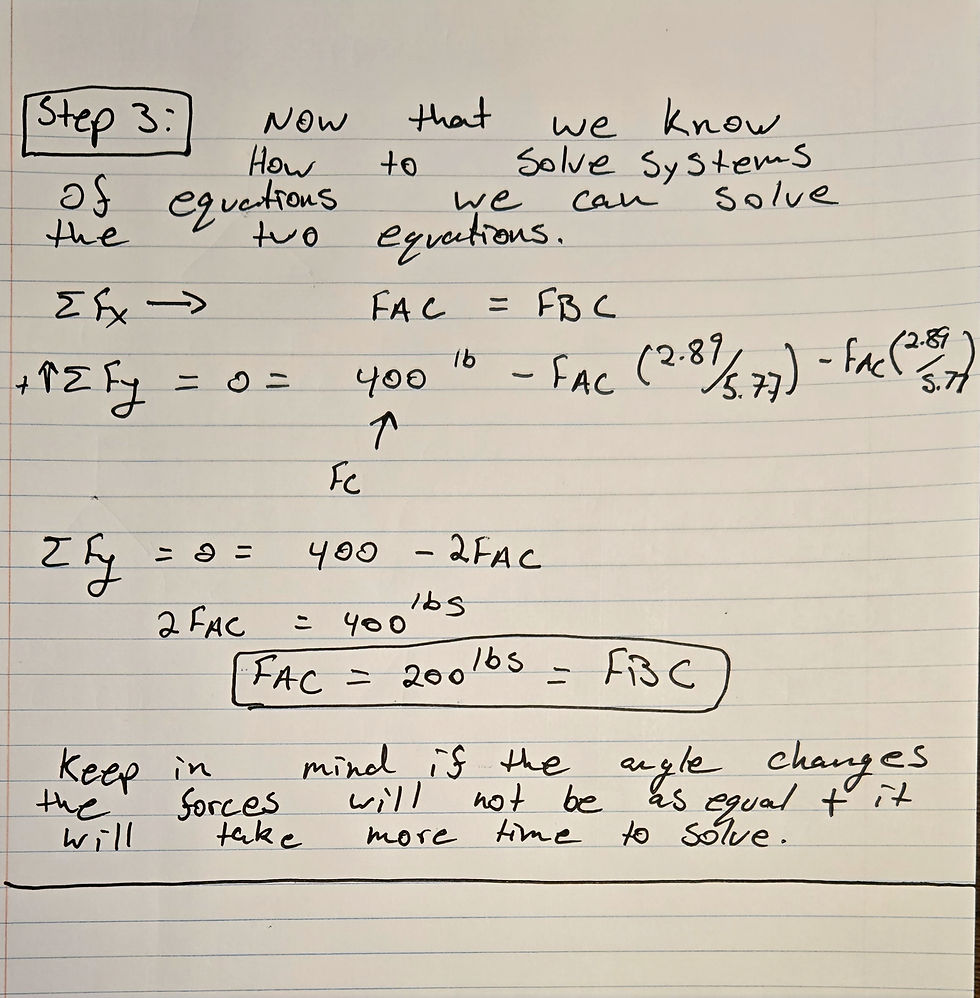 Step 3: Now that we know
How to solve systems
of equations we can solve
the two equations.
Σ Fx → FAC = FBC
+↑Σ Fy = 0 = 400 lb - FAC (2.89/5.77) - FAC (2.89/5.77)
↑
FC
Σ Fy = 0 = 400 - 2FAC
2 FAC = 400 lbs
FAC = 200 lbs = FBC
Keep in mind if the angle changes
the forces will not be as equal + it
will take more time to solve.